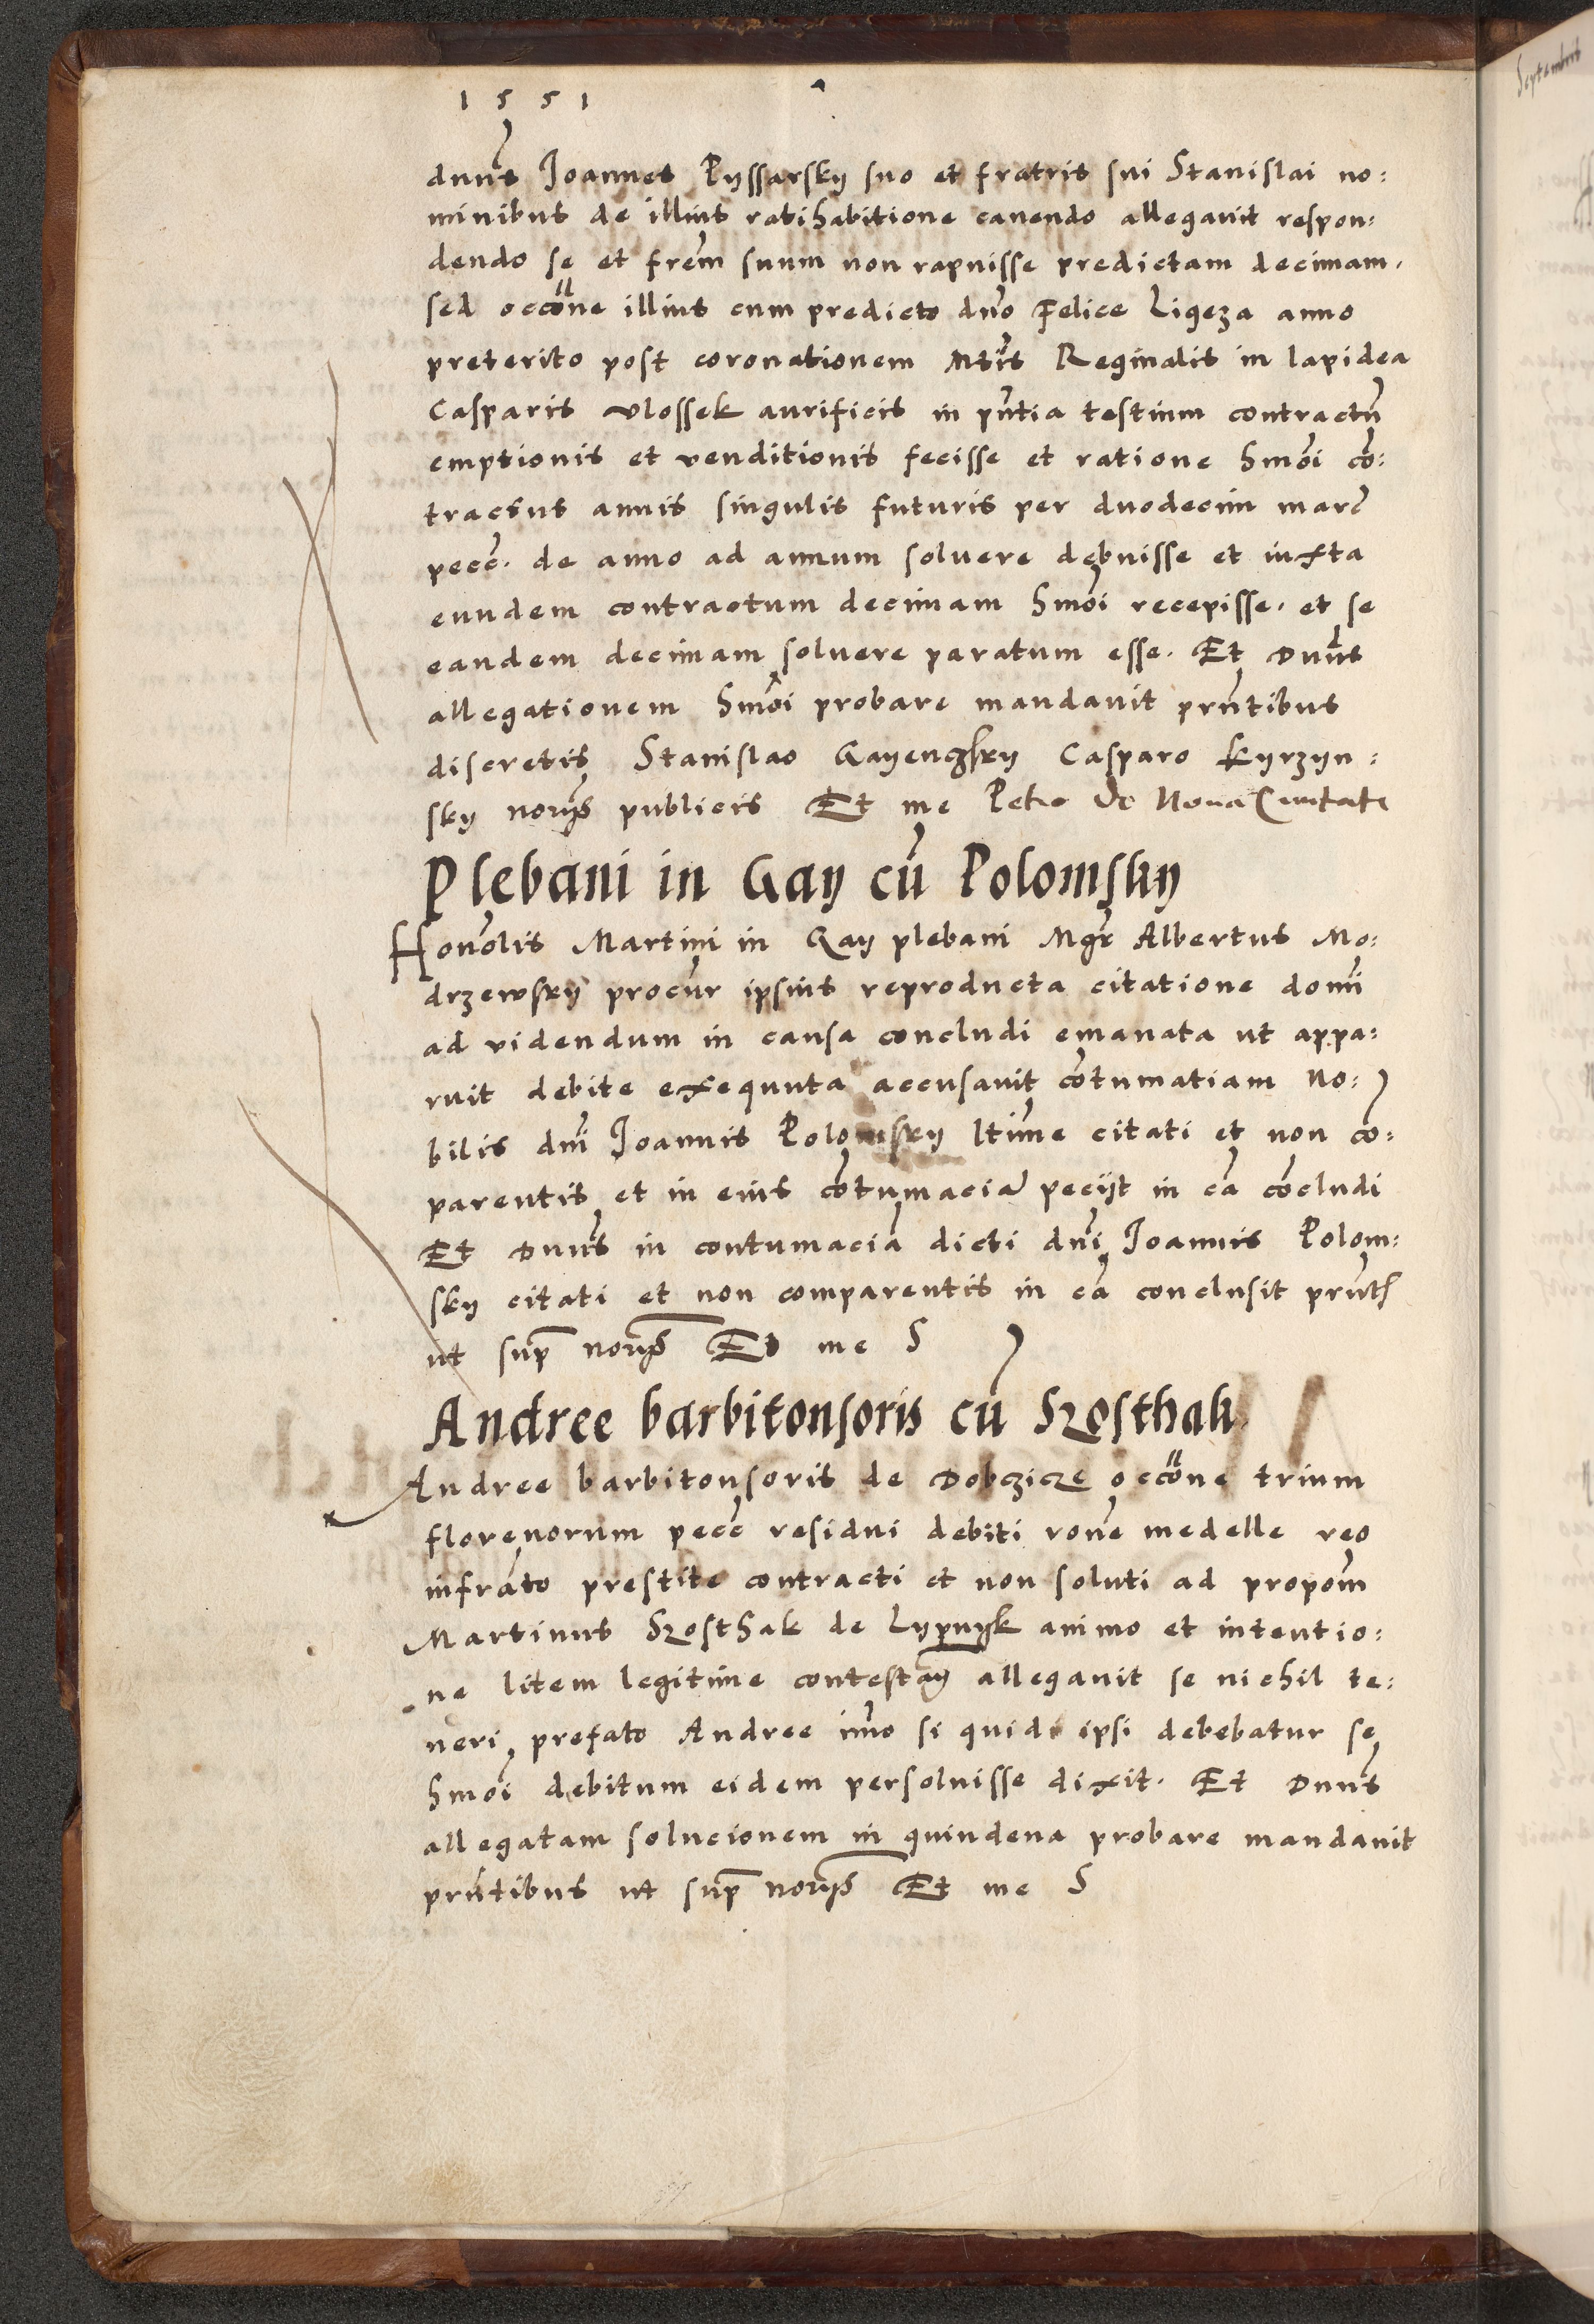 1551
dnus Joannes Pyssarsky suo et fratris sui Stanislai no:
minibus de illius ratihabitione cavendo allegavit respon:
dendo se et frem suum non rapuisse predictam decimam.
sed occone illius cum predicto dno Felice Ligeza anno
preterito post coronationem Mtis Reginalis in lapidea
Casparis vlossek aurificis in pntia testium contractu
emptionis et venditionis fecisse et ratione hmoi co:
tractus annis singulis futuris per duodecim marc
pecc. de anno ad annum soluere debuisse et iuxta
eundem contractum decimam hmoi recepisse. et se
eandem decimam soluere paratum esse. Et Dnus
allegationem hmoi probare mandavit pntibus
discretis Stanislao Gayenczsky Casparo Kyrzyn:
sky norys publicis Et me Petro de Nova Civitate
Plebani in Gay cu Polomsky
Honolis Martini in Gay plebani Mgr Albertus Mo:
drzewsky procur ipsius reproducta citatione domi
ad videndum in causa concludi emanata ut appa:
ruit debite exequuta accusavit cotumatiam No:
bilis dni Joannis Polomsky ltime citati et non co:
parentis et in eius cotumacia peciit in ca cocludi
Et Dnus in contumacia dicti dni Joannis Polom:
sky citati et non comparentis in ca conclusit prnt
ut sup norys Et me S
Andree barbitonsoris cu Szosthak
Andree barbitonsoris de Dobczicze occone trium
florenorum pecc residui debiti rone medelle reo
infrato prestite contracti et non soluti ad propom
Martinus Szosthak de Lypnyk animo et intentio:
ne litem legitime contestan allegavit se nichil te:
neri prefato Andree imo si quid ipsi debebatur se
hmoi debitum eidem persoluisse dixit. Et Dnus
allegatam solucionem in quindena probare mandavit
prntibus ut sup norys Et me S
Septembris